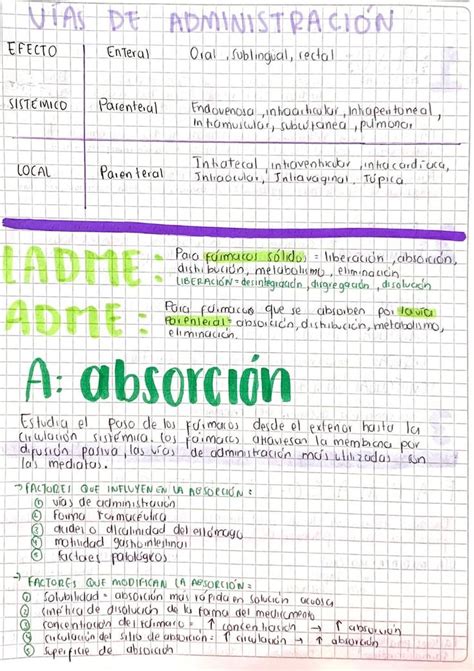 VÍAS DE ADMINISTRACIÓN
EFECTO Enteral Oral, sublingual, rectal
SISTÉMICO Parenteral Endovenosa, intraarticular, Intraperitoneal,
Intramuscular, subcutanea, pulmonar
LOCAL Parenteral Intratecal, intraventricular, intracardiaca,
Intraocular, Intravaginal, Tópica.
LADME: Para fármacos sólidos = liberación, absorción,
distribución, metabolismo, eliminación
LIBERACIÓN = desintegración, disgregación, disolución
ADME: Para fármacos que se absorben por la vía
Parenteral = absorción, distribución, metabolismo,
eliminación.
A: absorción
Estudia el paso de los fármacos desde el exterior hasta la
circulación sistémica. Los fármacos atraviesan la membrana por
difusión pasiva, las vías de administración más utilizadas son
las mediatas.
→ FACTORES QUE INFLUYEN EN LA ABSORCIÓN:
① vías de administración
② forma farmacéutica
③ acidez o alcalinidad del estómago
④ motilidad gastrointestinal
⑤ factores patológicos
→ FACTORES QUE MODIFICAN LA ABSORCIÓN:
① solubilidad = absorción más rápida en solución acuosa
② cinética de disolución de la forma del medicamento
③ concentración del fármaco = ↑ concentración → ↑ absorción
④ circulación del sitio de absorción = ↑ circulación → ↑ absorción
⑤ superficie de absorción